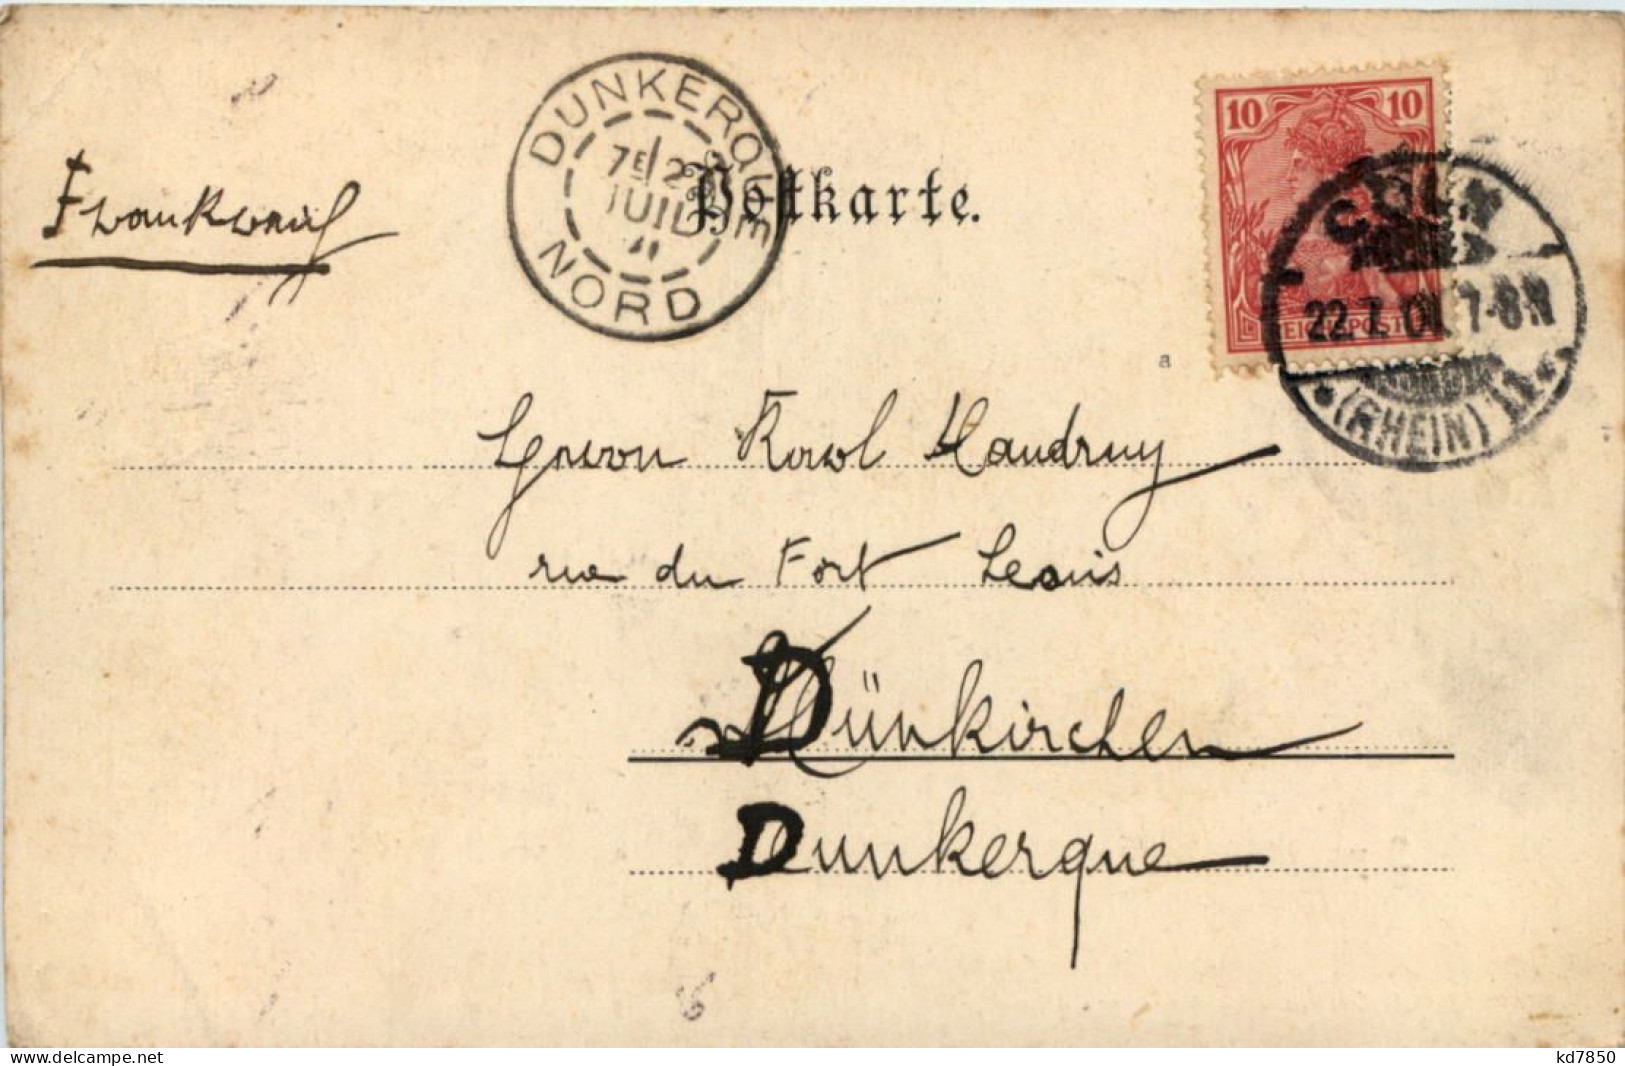 DUNKERQUE
7E/23
JUIL
NORD
Postkarte.
10 10
REICHSPOST
CÖLN
22.7.01 7-8N
(RHEIN) 11
Frankreich
a
rue du Fort Louis
Dünkirchen
Dunkerque
www.delcampe.net
kd7850